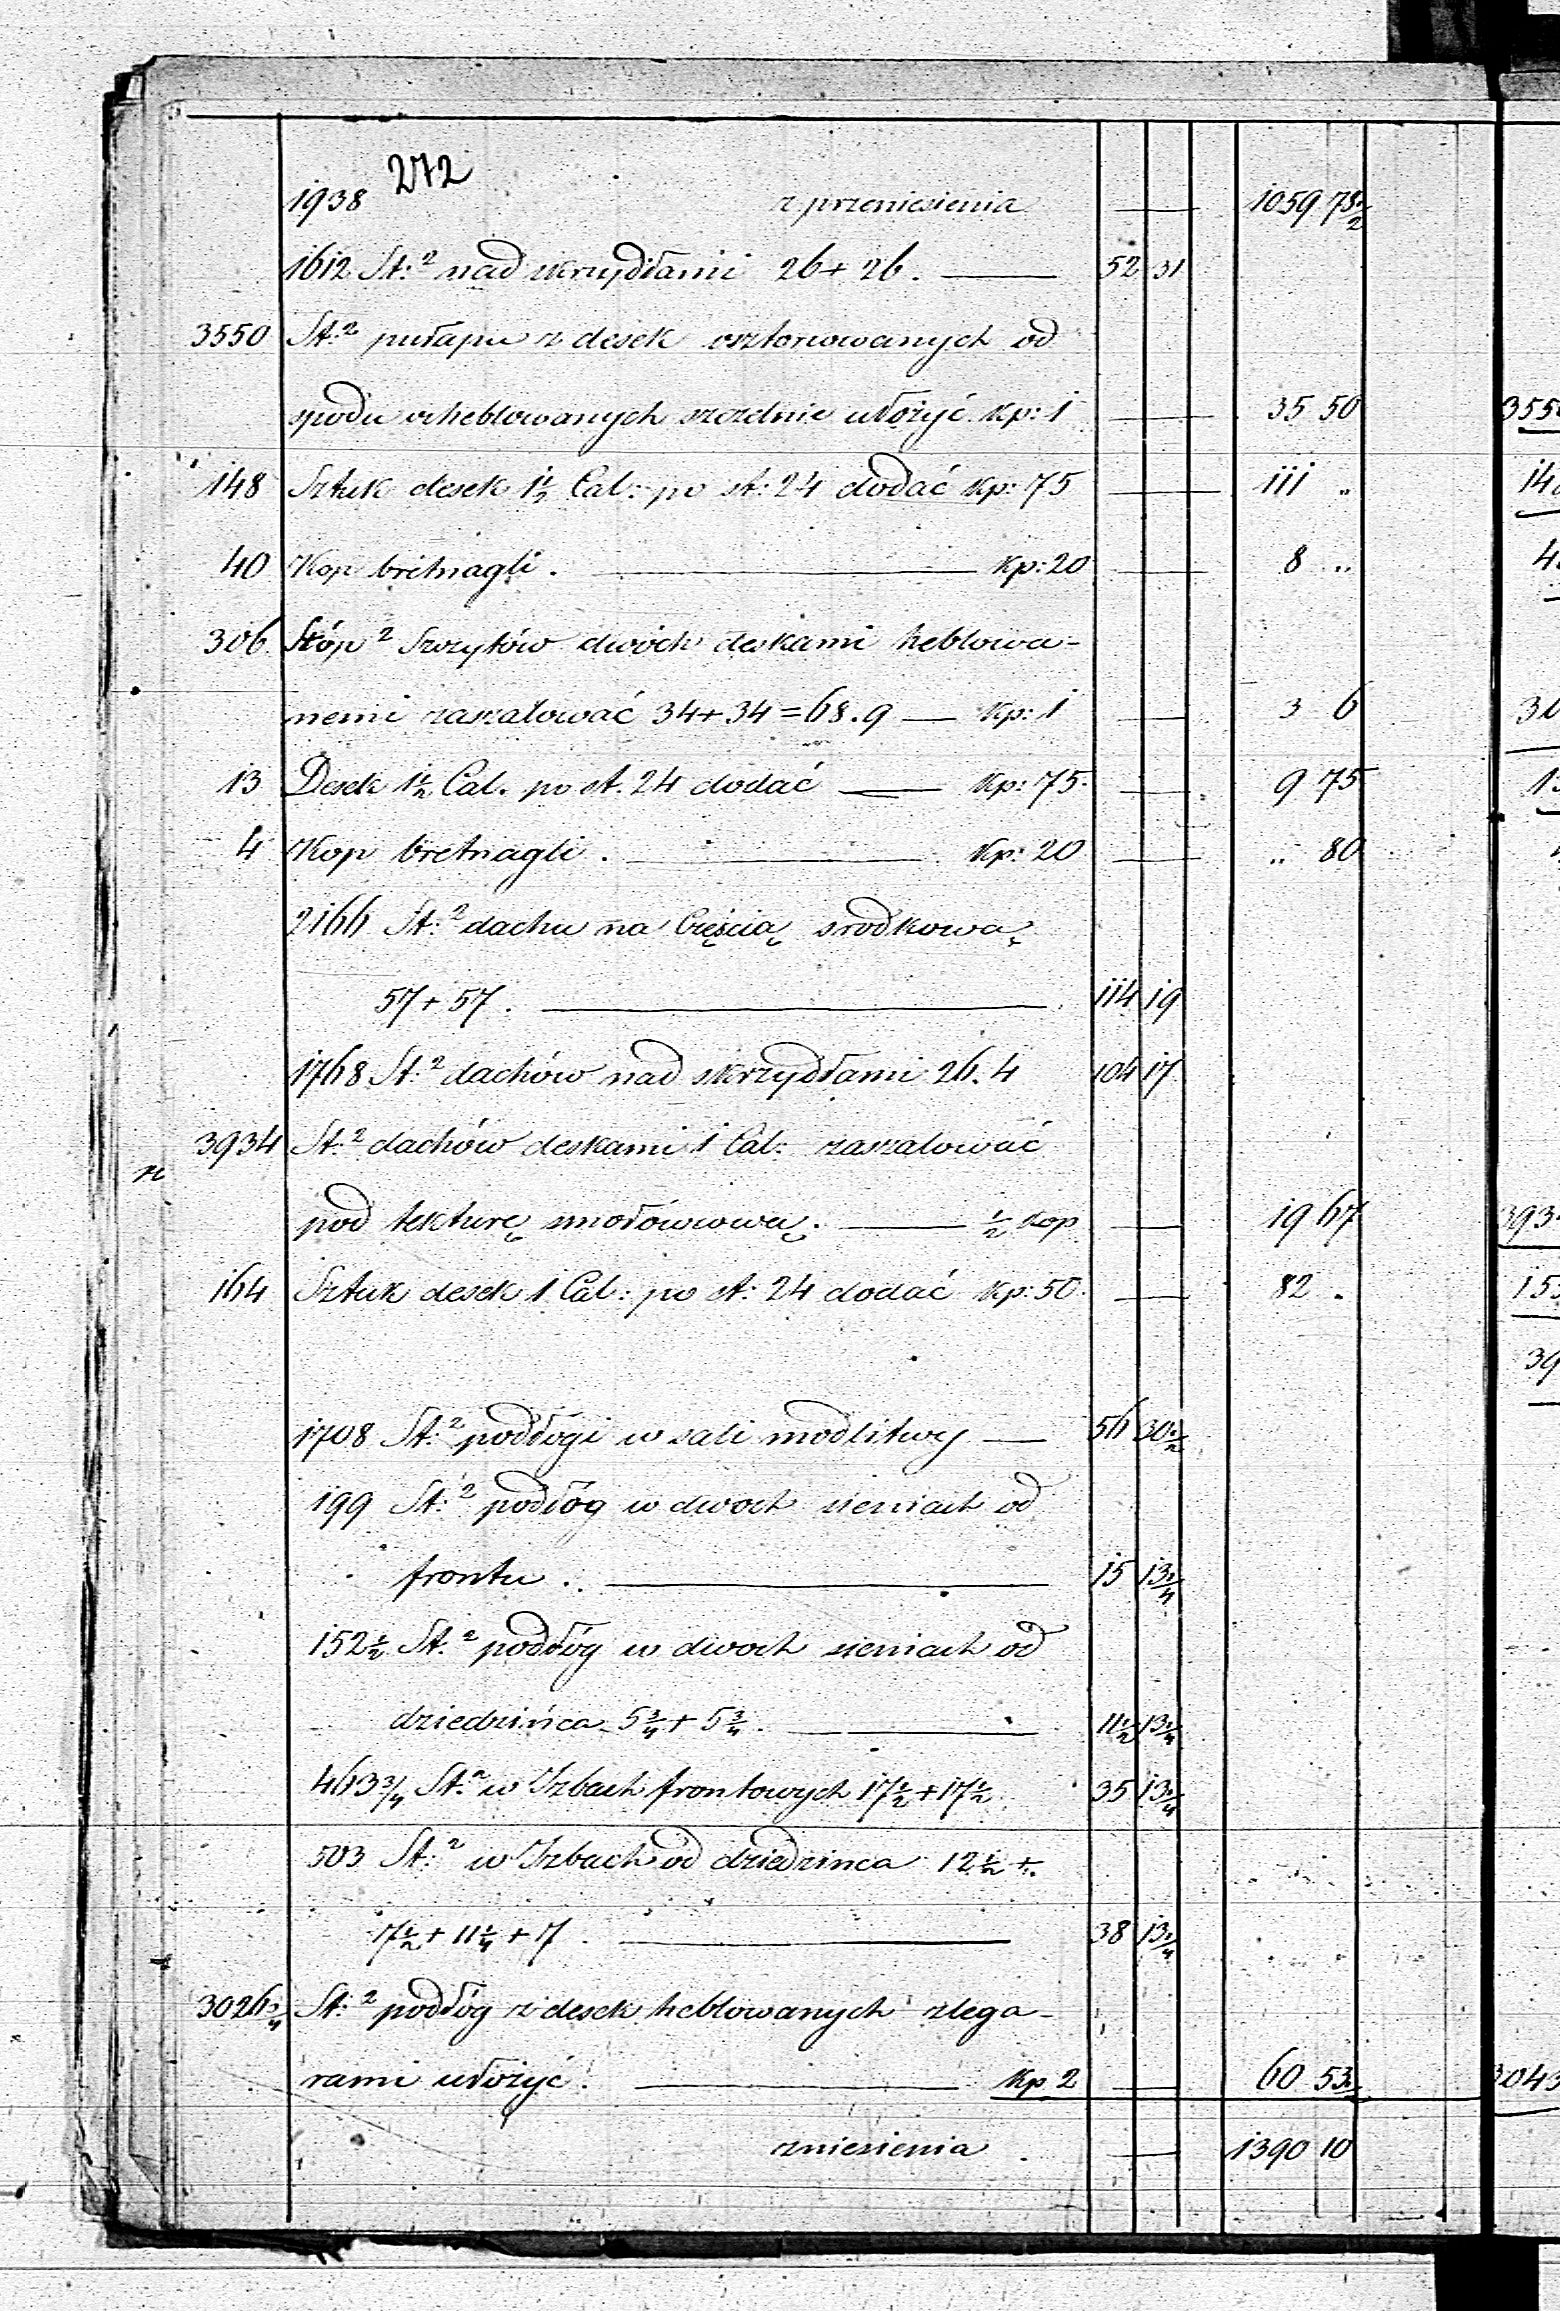 272
1938 z przeniesienia — 1059 78½
1612 St:² nad skrzydłami 26+26. — 52 31
3550 St:² pułapu z desek osztorcowanych od
spodu oheblowanych szczelnie ułożyć Kp: 1 — 35 50 355
148 Sztuk desek 1½ Cal: po st: 24 dodać Kp: 75 — 111 „ 14
40 Kop bretnagli. — Kp: 20 — 8 „ 4
306. Stóp² Szczytów dwóch deskami heblowa-
nemi zaszalować 34+34=68.9 — Kp: 1 — 3 6 30
13 Desek 1½ Cal. po st. 24 dodać — Kp: 75. — 9 75 1
4 Kop bretnagli. — Kp: 20 — „ 80
2166 St:² dachu na Częścią srodkową
57+57. — 114 19
1768 St:² dachów nad skrzydłami 26.4 104 17
3934 St:² dachów deskami 1 Cal: zaszalować
pod tekturę smołówcową. — ½ Kop — 19 67 393
164 Sztuk desek 1 Cal: po st: 24 dodać Kp: 50. — 82 . 15
39
1708 St:² podłogi w sali modlitwy — 56 30½
199 St:² podłóg w dwoch sieniach od
frontu. — 15 13¼
152½ St:² podłóg w dwoch sieniach od
dziedzińca 5¾+5¾. — 11½ 13¼
463¾ St:² w Izbach frontowych 17½+17½ 35 13¼
503 St:² w Izbach od dziedzinca 12½+
17½+11¼+17. — 38 13¼
3026¾ St:² podłóg z desek heblowanych zlega-
rami ułożyć. — Kp 2 — 60 53½ 3043
zniesienia — 1390 10